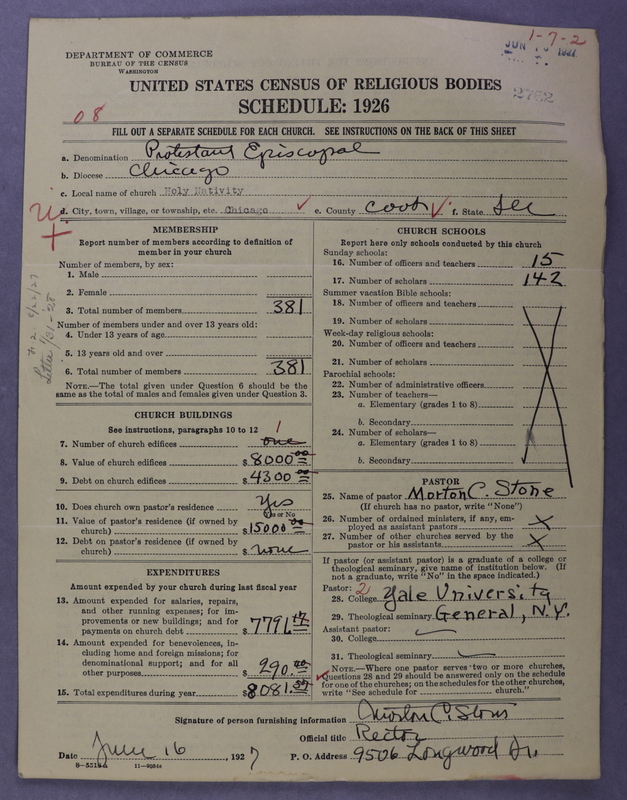 1-7-2
JUN
2762
DEPARTMENT OF COMMERCE
BUREAU OF THE CENSUS
WASHINGTON
UNITED STATES CENSUS OF RELIGIOUS BODIES
SCHEDULE: 1926
08
FILL OUT A SEPARATE SCHEDULE FOR EACH CHURCH. SEE INSTRUCTIONS ON THE BACK OF THIS SHEET
a. Denomination Protestant Episcopal
b. Diocese Chicago
c. Local name of church Holy Nativity
d. City, town, village, or township, etc. Chicago e. County Cook f. State Ill
MEMBERSHIP
Report number of members according to definition of
member in your church
Number of members, by sex:
1. Male
2. Female
3. Total number of members 381
Number of members under and over 13 years old:
4. Under 13 years of age
5. 13 years old and over
6. Total number of members 381
NOTE.—The total given under Question 6 should be the
same as the total of males and females given under Question 3.
Letter 1/31-28
CHURCH BUILDINGS
See instructions, paragraphs 10 to 12
7. Number of church edifices one 1
8. Value of church edifices $8000.00
9. Debt on church edifices $4300.00
10. Does church own pastor's residence? Yes
Yes or No
11. Value of pastor's residence (if owned by
church) $15000.00
12. Debt on pastor's residence (if owned by
church) $ none
EXPENDITURES
Amount expended by your church during last fiscal year
13. Amount expended for salaries, repairs,
and other running expenses; for im-
provements or new buildings; and for
payments on church debt $7791.17
14. Amount expended for benevolences, in-
cluding home and foreign missions; for
denominational support; and for all
other purposes $290.
15. Total expenditures during year $8081.
CHURCH SCHOOLS
Report here only schools conducted by this church
Sunday schools:
16. Number of officers and teachers 15
17. Number of scholars 142
Summer vacation Bible schools:
18. Number of officers and teachers
19. Number of scholars
Week-day religious schools:
20. Number of officers and teachers
21. Number of scholars
Parochial schools:
22. Number of administrative officers
23. Number of teachers—
a. Elementary (grades 1 to 8)
b. Secondary
24. Number of scholars—
a. Elementary (grades 1 to 8)
b. Secondary
PASTOR
25. Name of pastor Morton C. Stone
(If church has no pastor, write "None")
26. Number of ordained ministers, if any, em-
ployed as assistant pastors X
27. Number of other churches served by the
pastor or his assistants X
If pastor (or assistant pastor) is a graduate of a college or
theological seminary, give name of institution below. (If
not a graduate, write "No" in the space indicated.)
Pastor: 2
28. College Yale University
29. Theological seminary General, N.Y.
Assistant pastor:
30. College
31. Theological seminary
NOTE.—Where one pastor serves two or more churches,
Questions 28 and 29 should be answered only on the schedule
for one of the churches; on the schedules for the other churches,
write "See schedule for church."
Signature of person furnishing information Morton C. Stone
Official title Rector
Date June 16, 1927 P. O. Address 9506 Longwood Dr.
11—9084